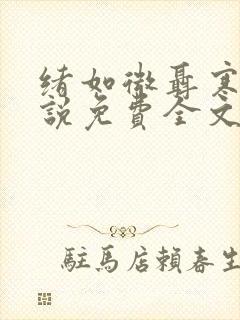 緒如微聶寒
說免費全文
駐馬店賴春生